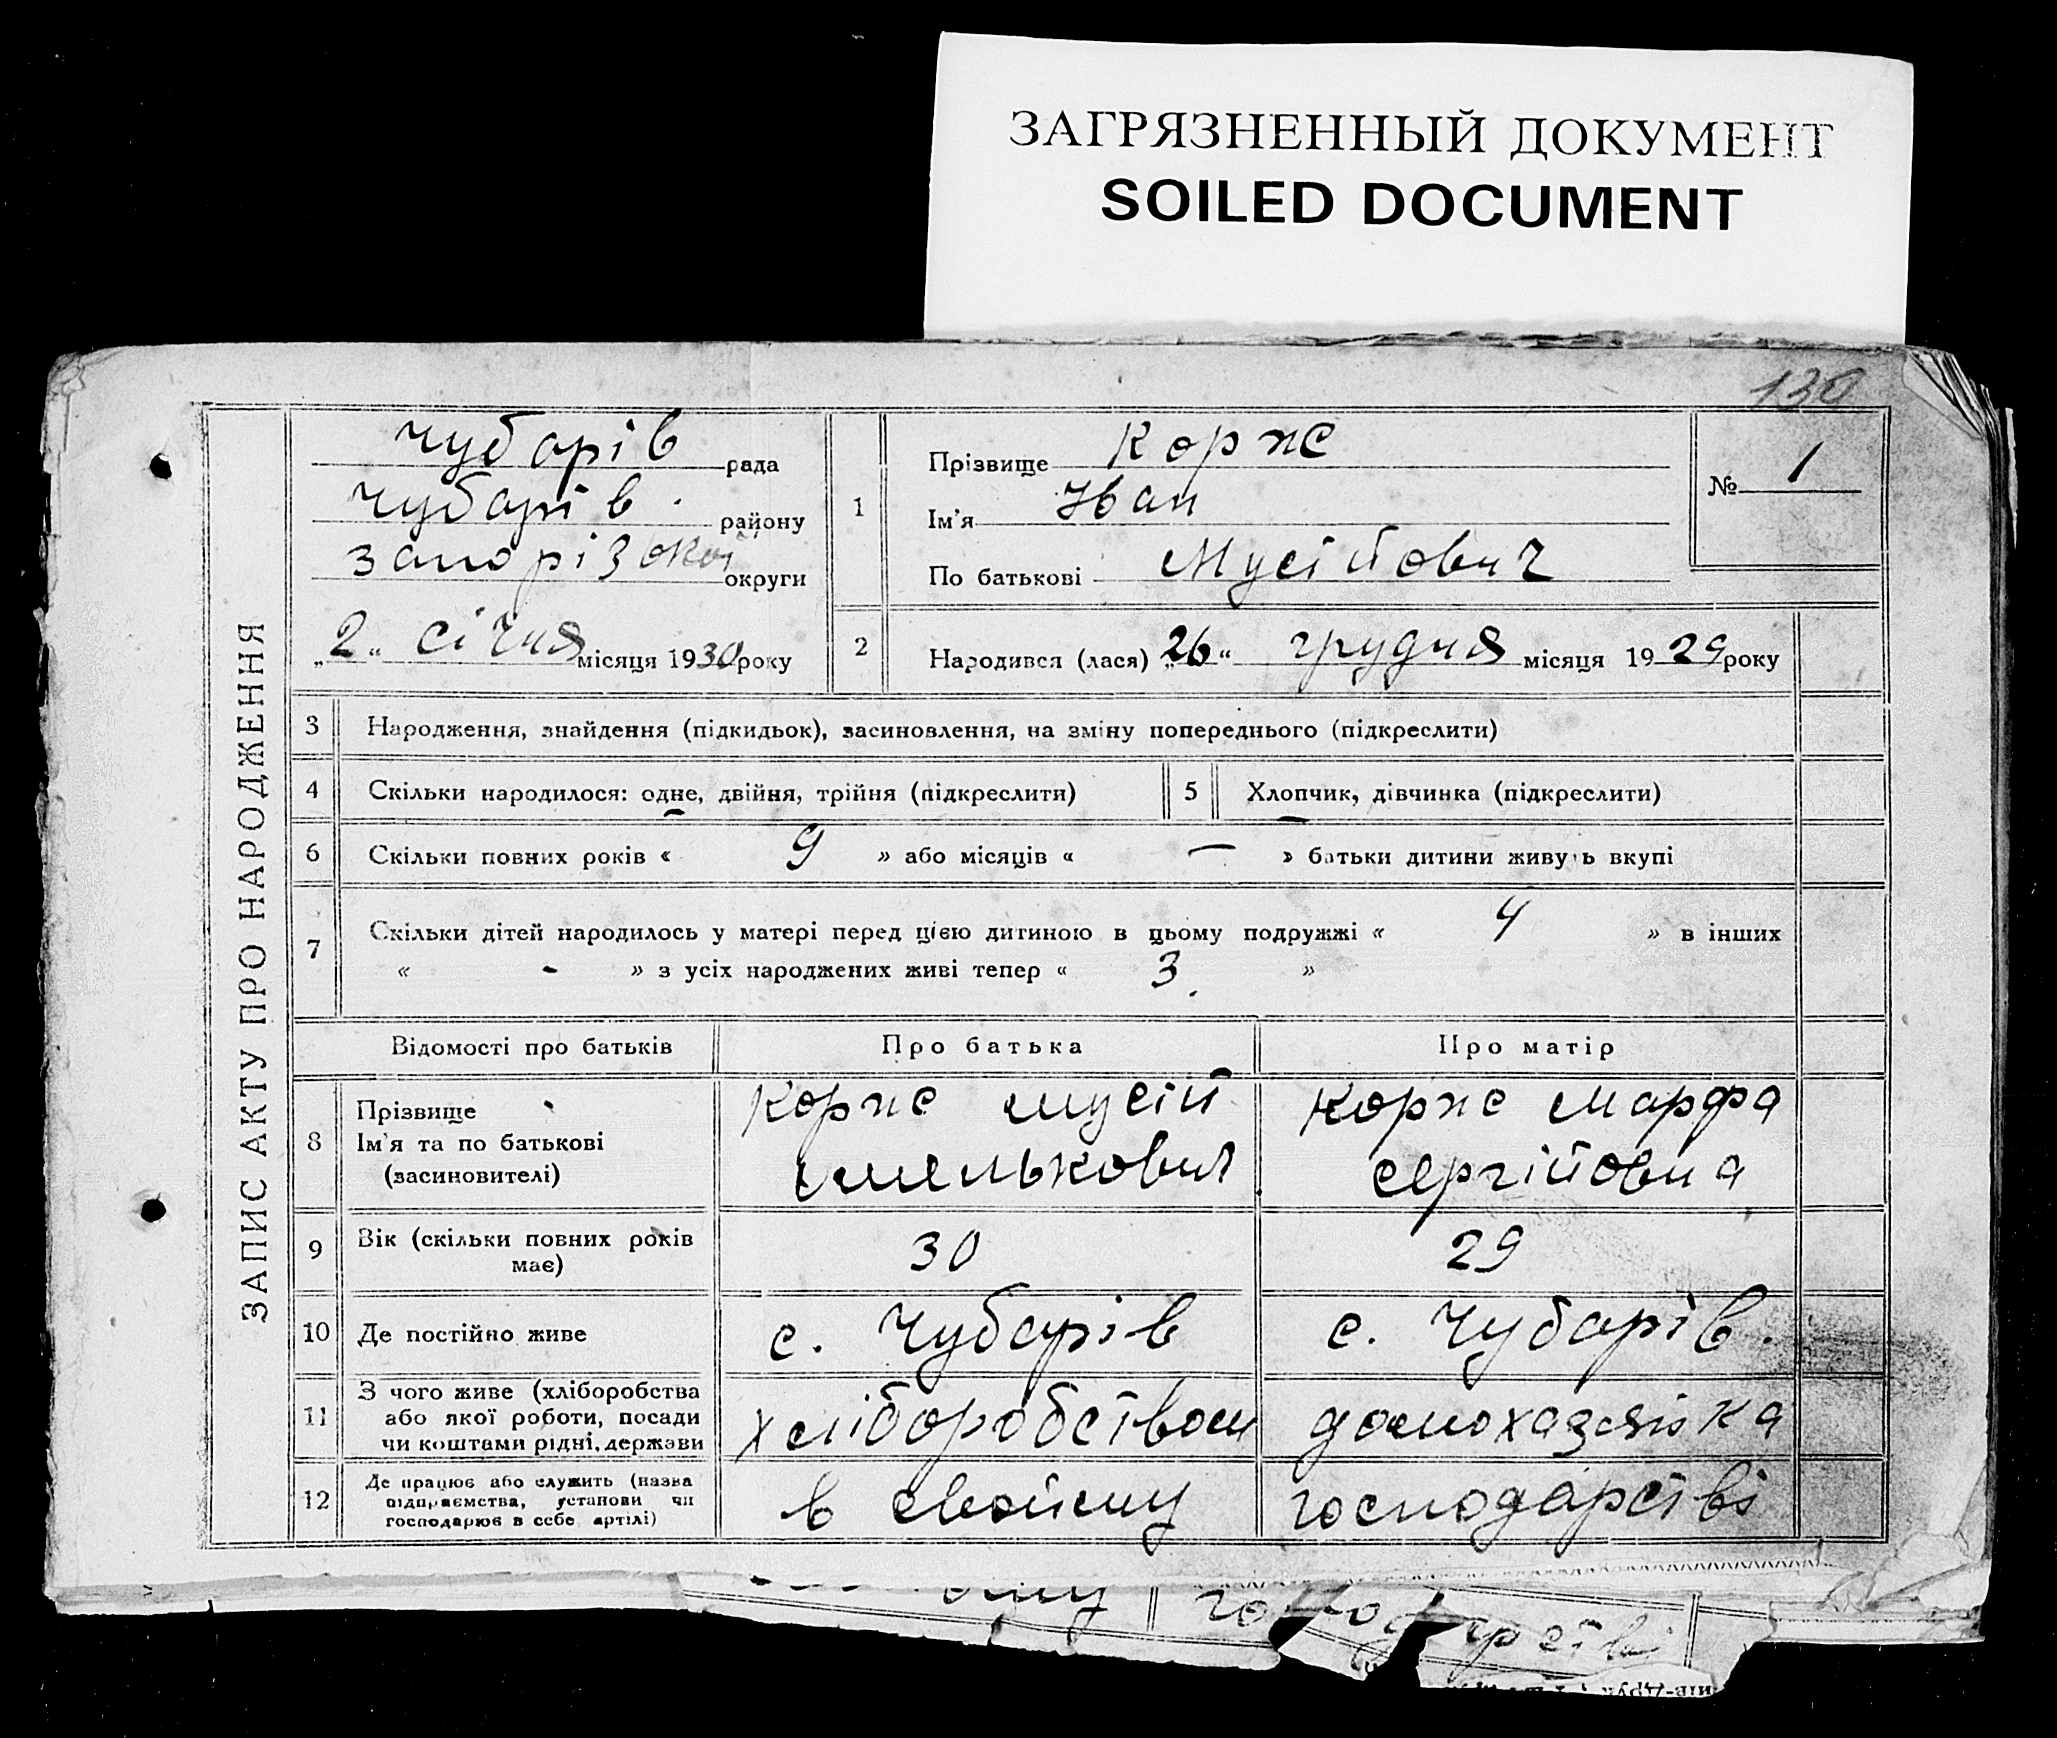 ЗАГРЯЗНЕННЫЙ ДОКУМЕНТ
SOILED DOCUMENT
130
ЗАПИС АКТУ ПРО НАРОДЖЕННЯ
Чубарів рада
Чубарів району
Запорізької округи
„2“ січня місяця 1930 року
1
Прізвище Корж
Ім'я Иван
По батькові Мусійович
№ 1
2 Народився (лася) „26“ грудня місяця 1929 року
3 Народження, знайдення (підкидьок), засиновлення, на зміну попереднього (підкреслити)
4 Скільки народилося: одне, двійня, трійня (підкреслити) 5 Хлопчик, дівчинка (підкреслити)
6 Скільки повних років « 9 » або місяців « — » батьки дитини живуть вкупі
7 Скільки дітей народилось у матері перед цією дитиною в цьому подружжі « 4 » в інших
« - » з усіх народжених живі тепер « 3. »
Відомості про батьків Про батька Про матір
8 Прізвище
Ім'я та по батькові
(засиновителі)
Корж Мусій
Омелькович
Корж Марфа
Сергійовна
9 Вік (скільки повних років
має)
30 29
10 Де постійно живе с. Чубарів с. Чубарів.
11 З чого живе (хліборобства
або якої роботи, посади
чи коштами рідні, держави
хліборобством домохазяйка
12 Де працює або служить (назва
підприємства, установи чи
господарює в себе артілі)
в свойому господарстві